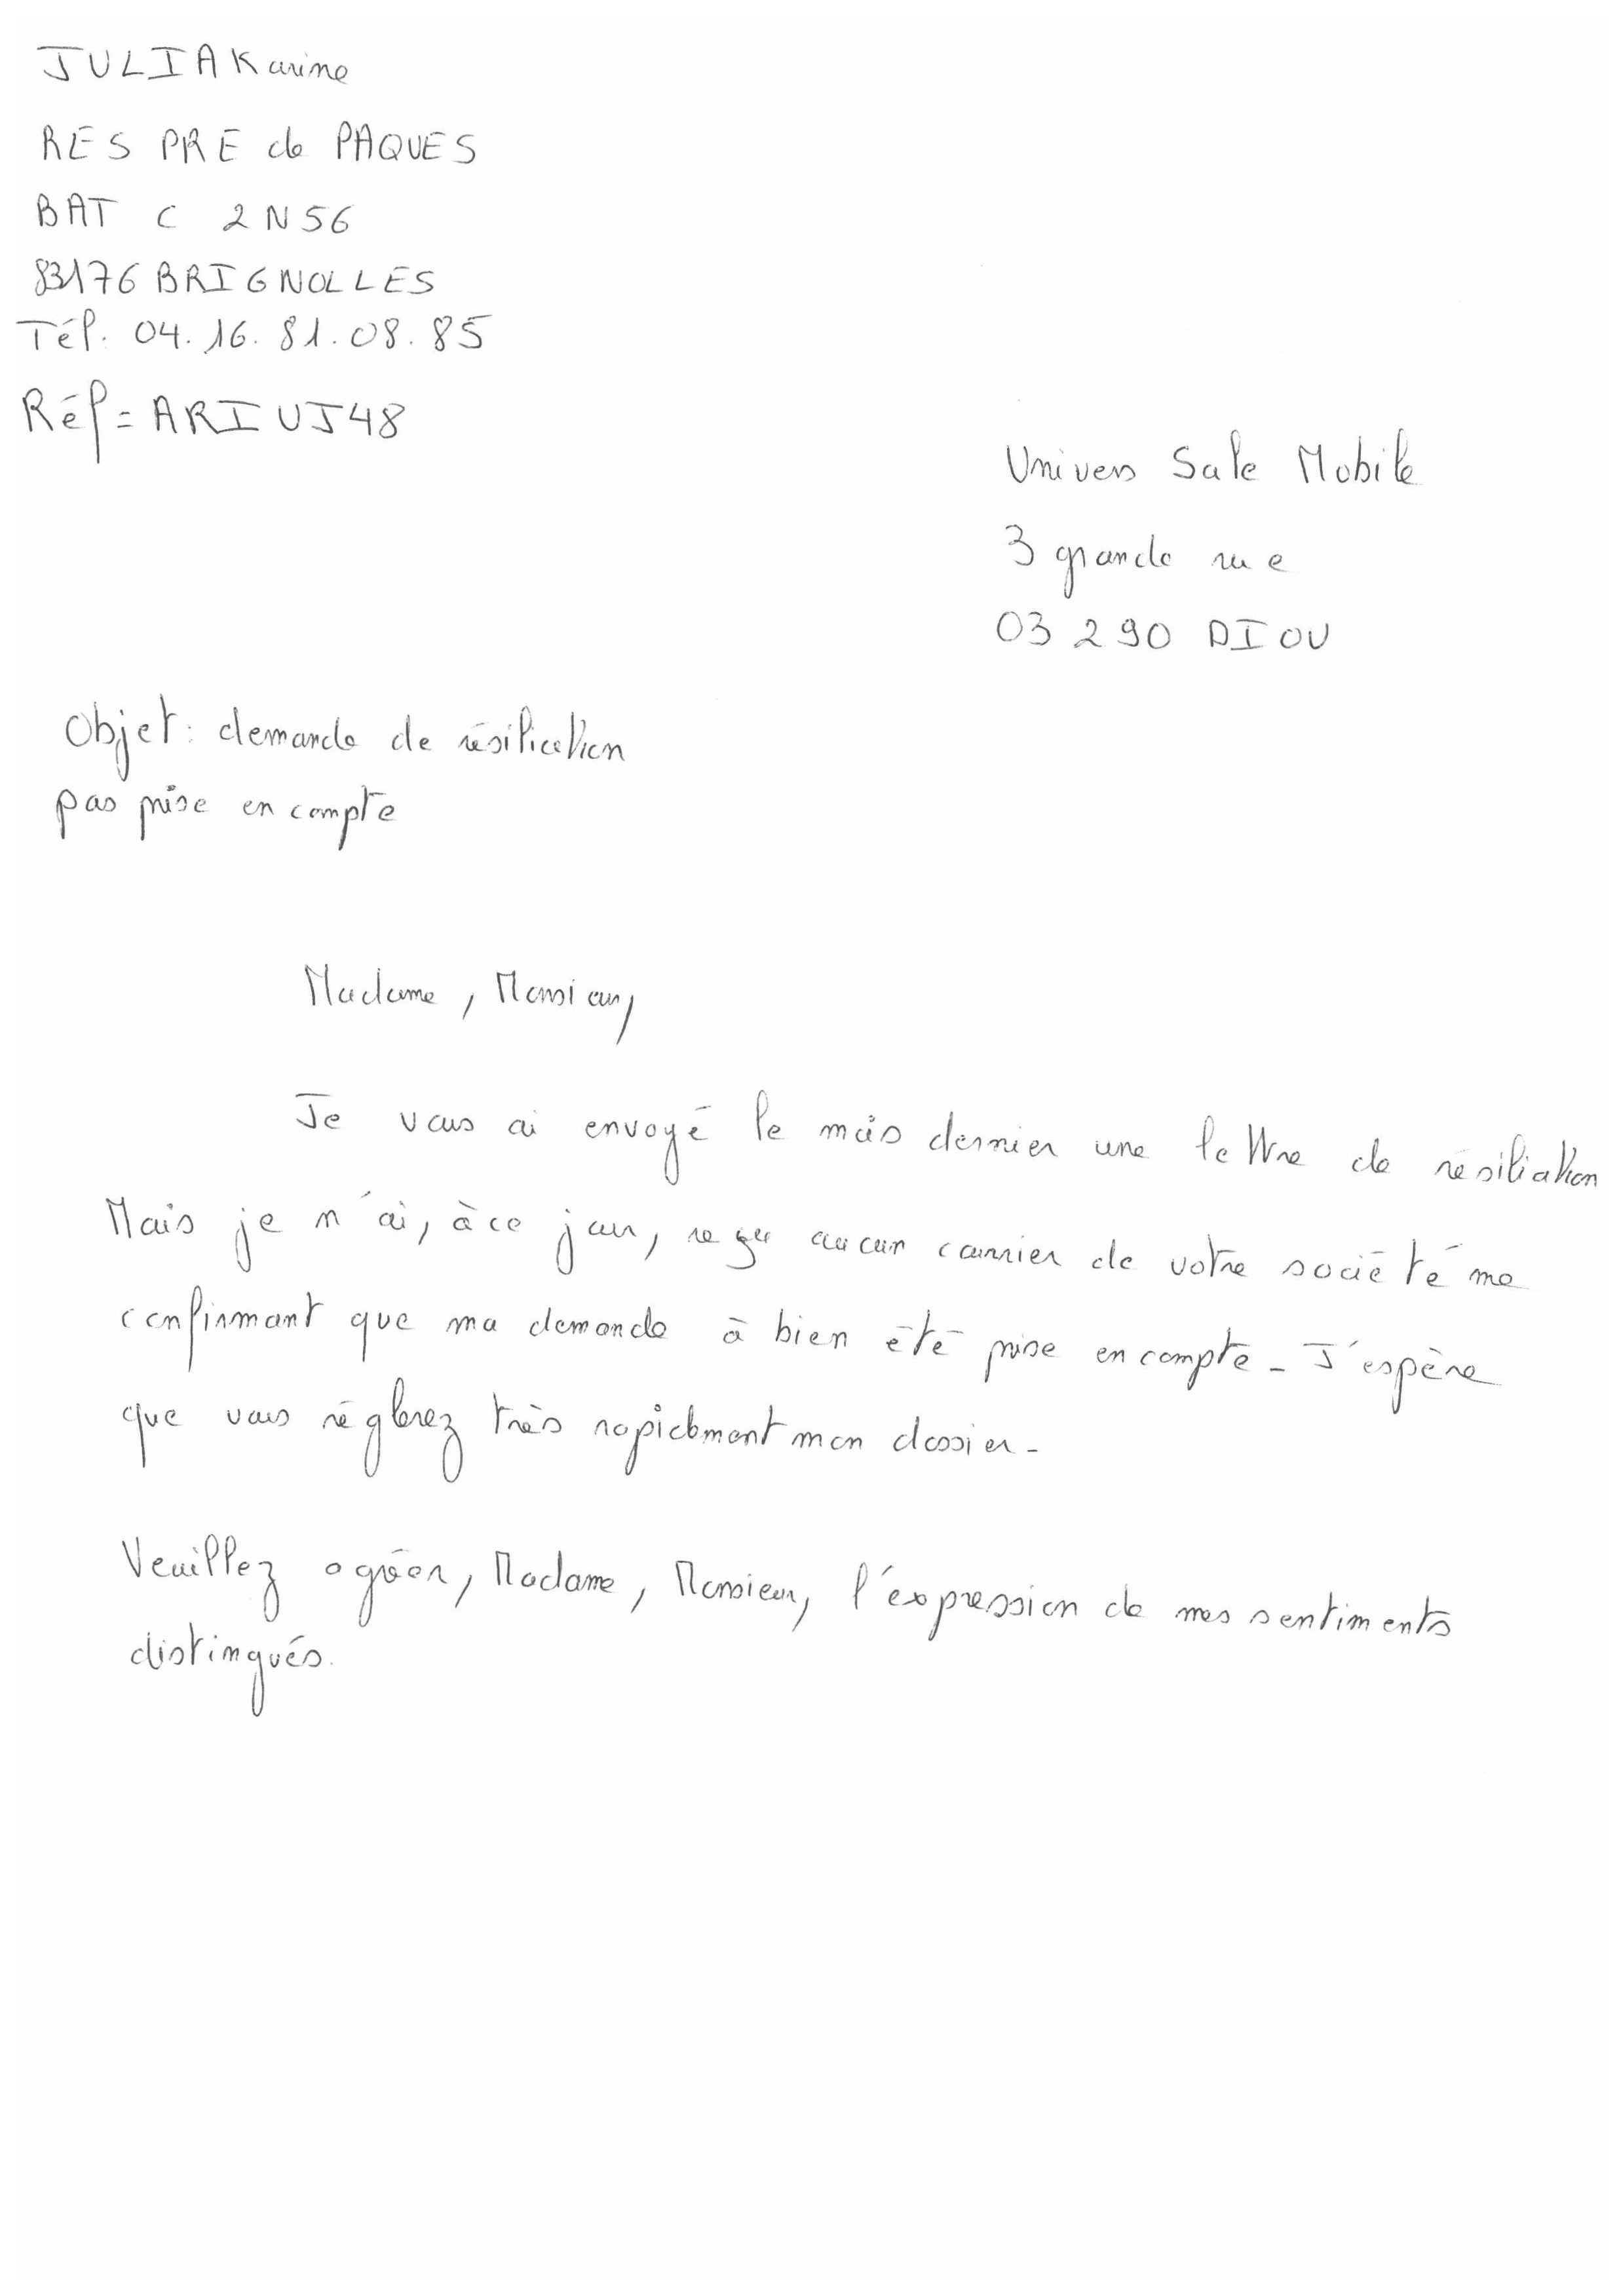 JULIA Karine
RES PRE de PAQUES
BAT C 2N56
83176 BRIGNOLLES
Tél. 04.16.81.08.85
Réf = ARIUJ48
Univers Sale Mobile
3 grande rue
03 290 DIOU
Objet : demande de résiliation
pas prise en compte
Madame, Monsieur,
Je vous ai envoyé le mois dernier une lettre de résiliation
Mais je n'ai, à ce jour, reçu aucun courrier de votre société me
confirmant que ma demande à bien été prise en compte - J'espère
que vous réglerez très rapidement mon dossier -
Veuillez agréer, Madame, Monsieur, l'expression de mes sentiments
distingués.